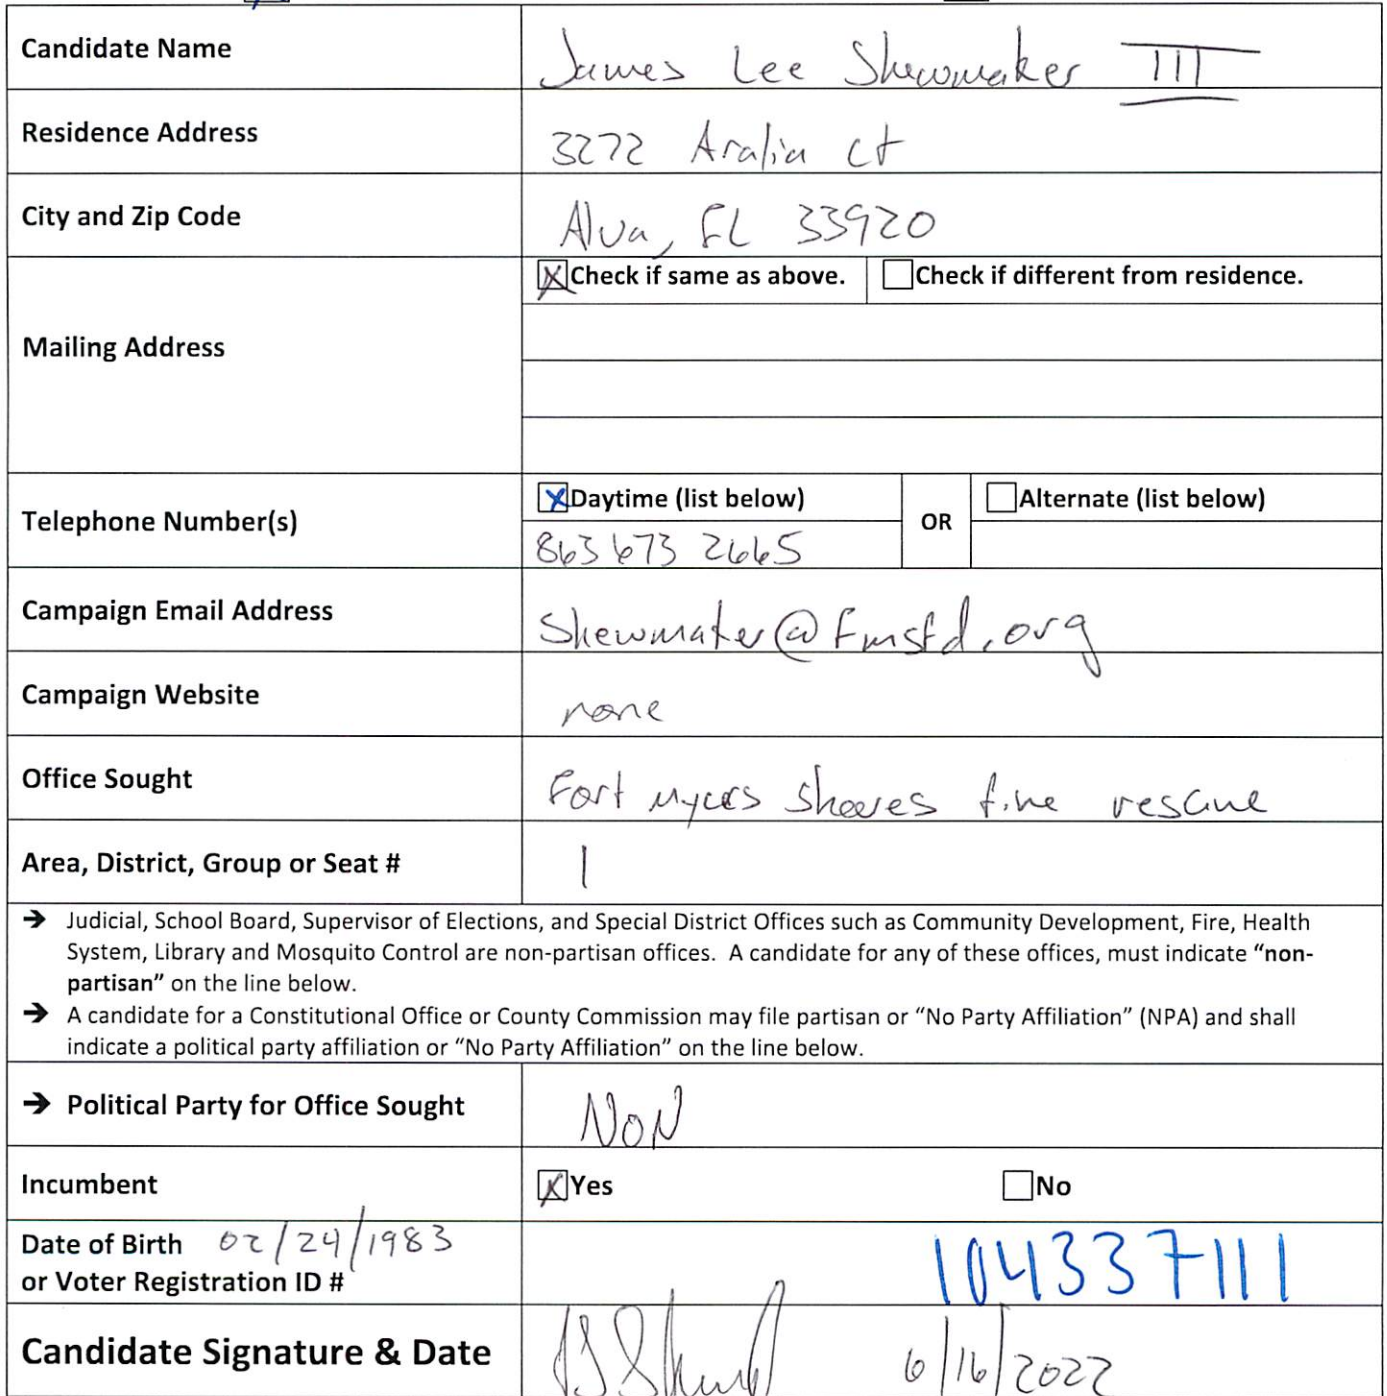 Candidate Name James Lee Shewmaker III
Residence Address 3272 Aralia Ct
City and Zip Code Alva, FL 33920
☒ Check if same as above. ☐ Check if different from residence.
Mailing Address
☒ Daytime (list below) OR ☐ Alternate (list below)
Telephone Number(s) 863 673 2665
Campaign Email Address Shewmaker@Fmsfd.org
Campaign Website none
Office Sought Fort Myers Shores fire rescue
Area, District, Group or Seat # 1
➔ Judicial, School Board, Supervisor of Elections, and Special District Offices such as Community Development, Fire, Health
System, Library and Mosquito Control are non-partisan offices. A candidate for any of these offices, must indicate “non-
partisan” on the line below.
➔ A candidate for a Constitutional Office or County Commission may file partisan or “No Party Affiliation” (NPA) and shall
indicate a political party affiliation or “No Party Affiliation” on the line below.
➔ Political Party for Office Sought NON
Incumbent ☒ Yes ☐ No
Date of Birth 02/24/1983
or Voter Registration ID # 104337111
Candidate Signature & Date 6/16/2022